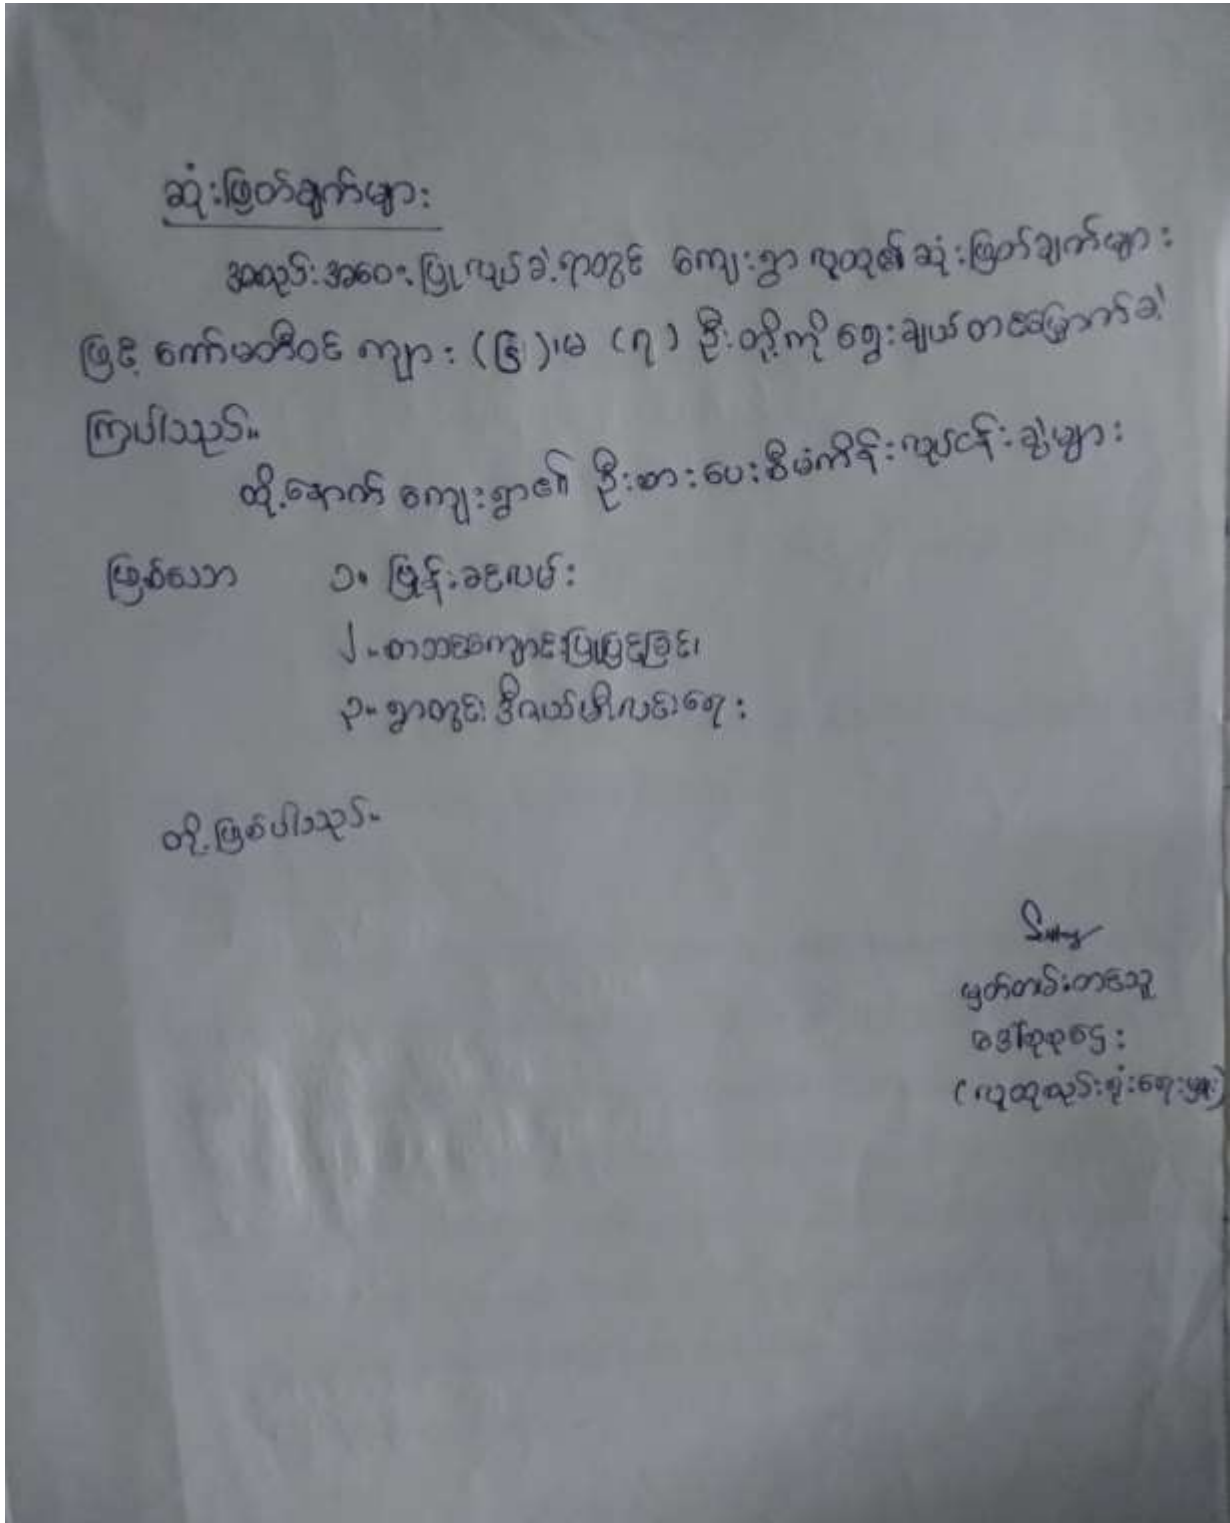 ဆုံးဖြတ်ချက်များ
အစည်းအဝေးပြုလုပ်ခဲ့ရာတွင် ကျေးရွာလူထု၏ဆုံးဖြတ်ချက်များ
ဖြင့် ကော်မတီဝင် ကျား (၆)၊မ (၇) ဦးတို့ကို ရွေးချယ်တင်မြှောက်ခဲ့
ကြပါသည်။
ထို့နောက် ကျေးရွာ၏ ဦးစားပေးစီမံကိန်းလုပ်ငန်းခွဲများ
ဖြစ်သော ၁။ မြုန်းခင်းလမ်း
၂။ စာသင်ကျောင်းပြုပြင်ခြင်း
၃။ ရွာတွင်း ဒီဇယ်မီးလင်းရေး
တို့ဖြစ်ပါသည်။
မှတ်တမ်းတင်သူ
ဒေါ်စုစုဌေး
(လူထုစည်းရုံးရေးမှူး)